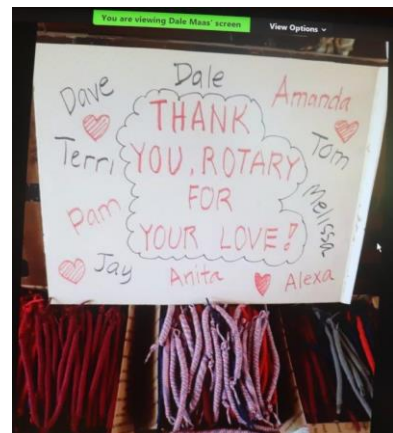 You are viewing Dale Maas' screen
View Options
Dave
Dale
Amanda
THANK
YOU, ROTARY
FOR
YOUR LOVE!
Terri
Tom
Pam
Melissa
Jay
Anita
Alexa